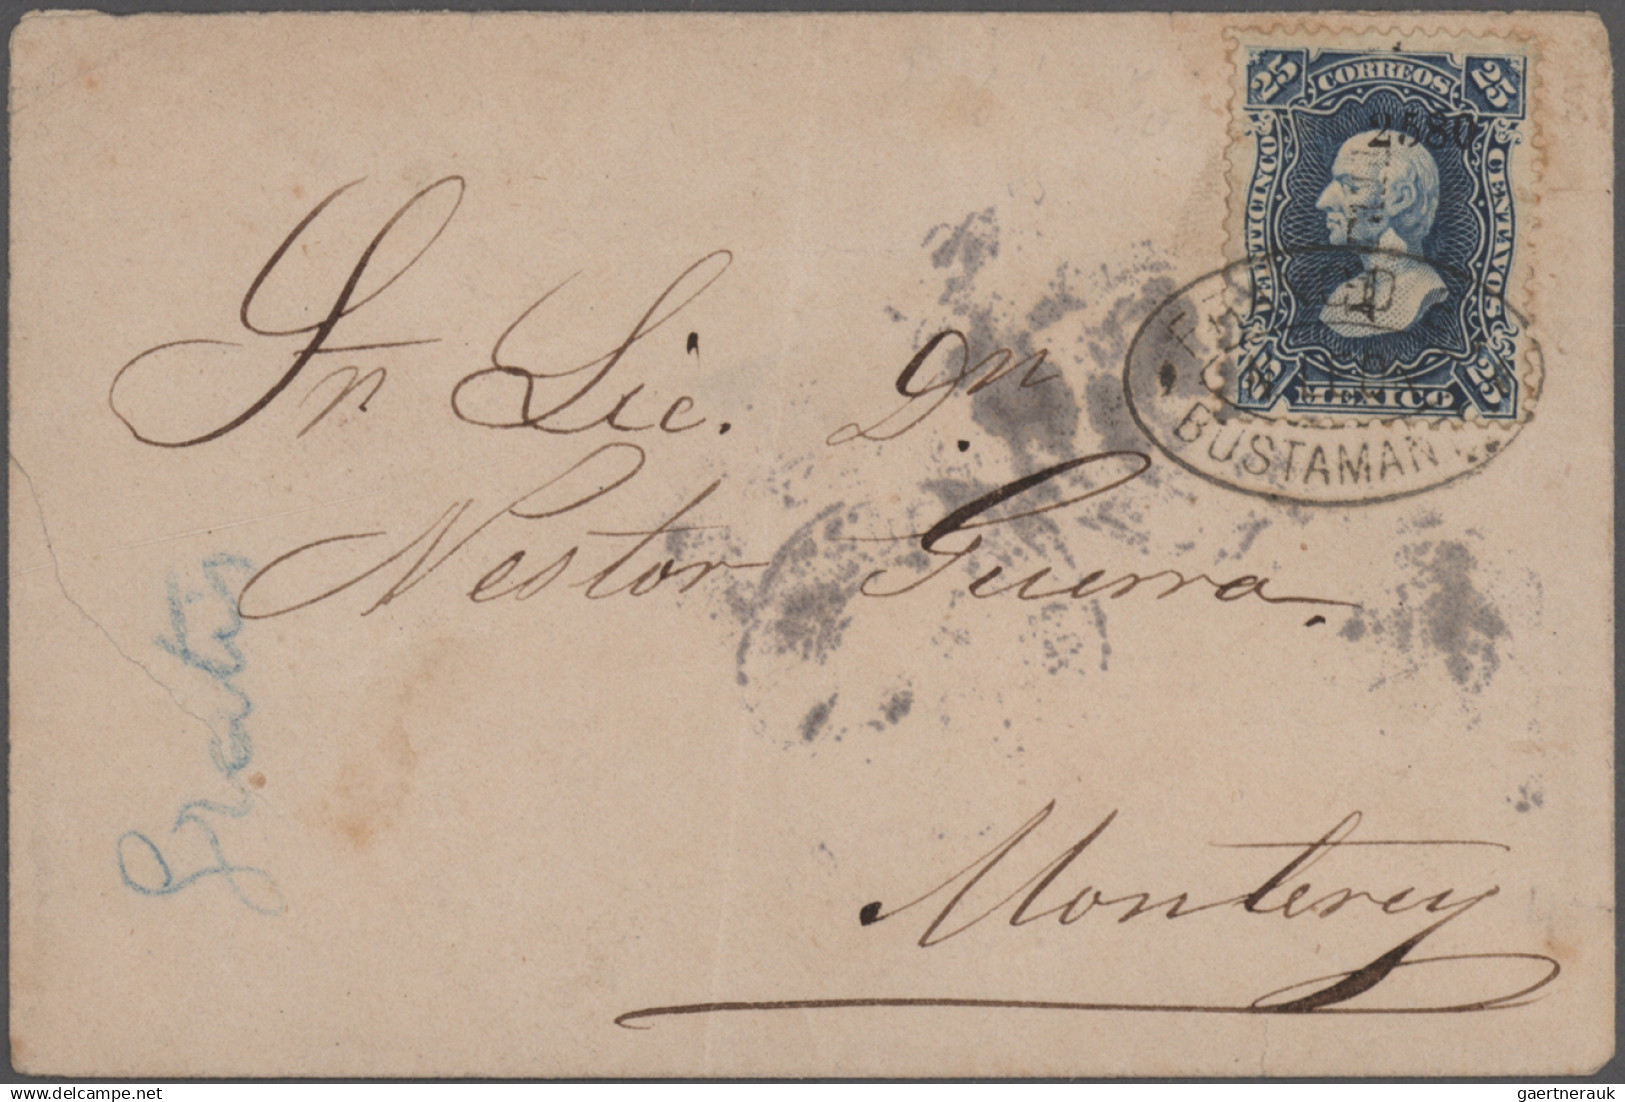 25 CORREOS 25
2580
VEINTICINCO
CENTAVOS
25 MEXICO 25
BUSTAMAN
Sr. Lic. Dn
Nestor Guerra.
Gratis
Monterey
www.delcampe.net
gaertnerauk